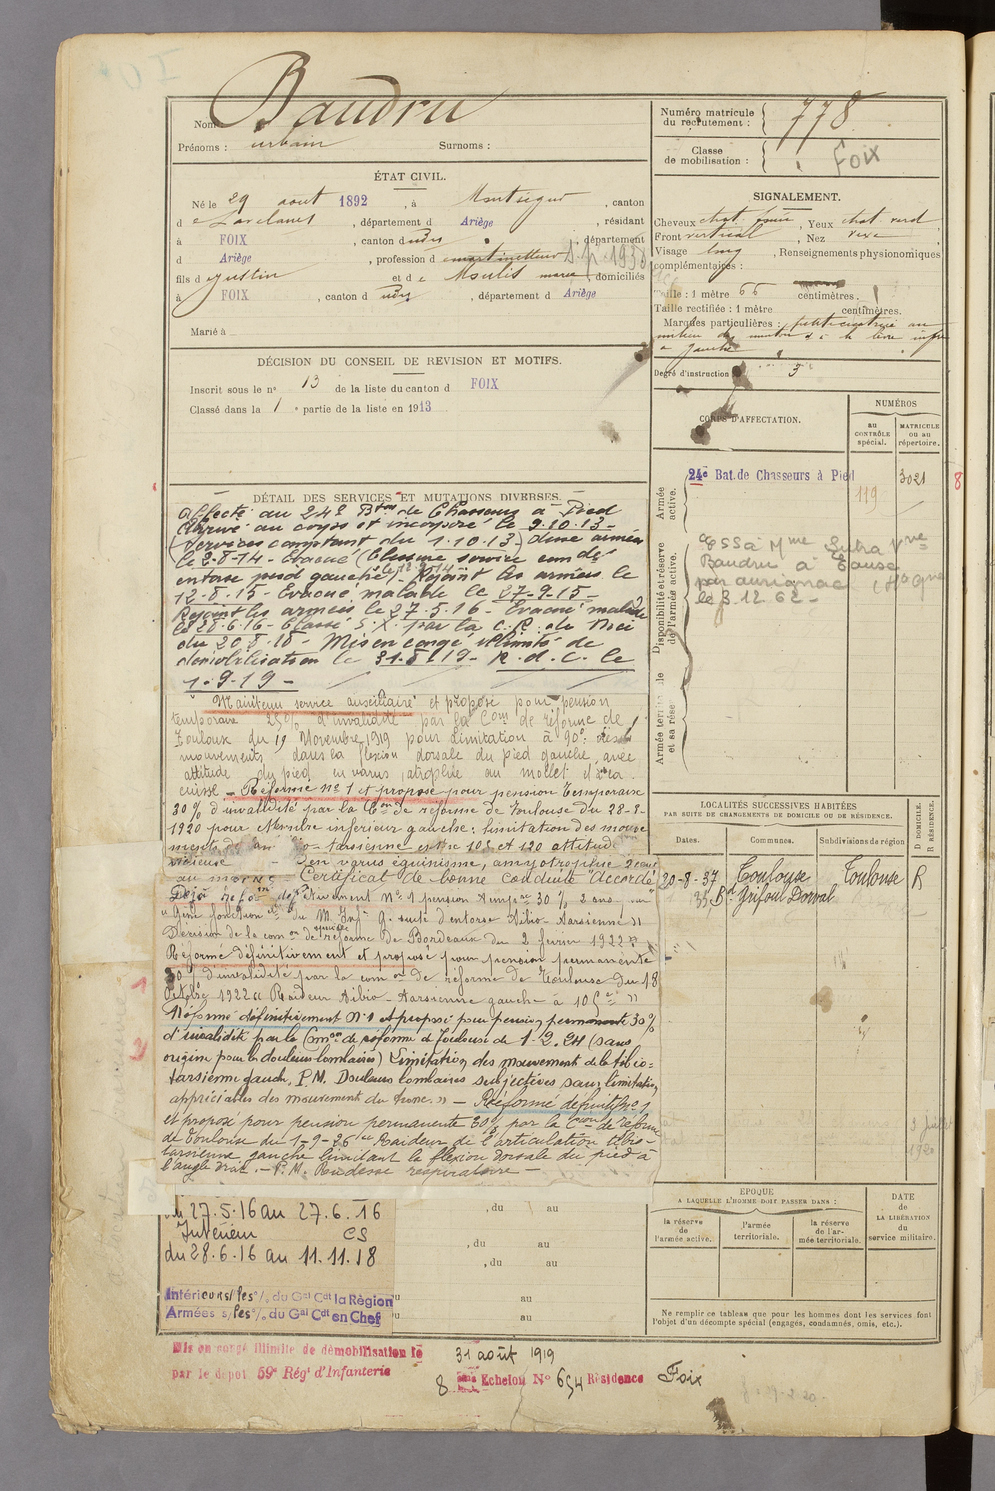 Nom : Baudru
Prénoms : urbain Surnoms :
Numéro matricule du recrutement : 778
Classe de mobilisation : Foix
ÉTAT CIVIL.
Né le 29 aout 1892, à Montségur, canton
d e Lavelanet, département d Ariège, résidant
à FOIX, canton dudy, département
d Ariège, profession d
fils d e Justin et de Moulis marie domiciliés
à FOIX, canton d udy, département d Ariège
Marié à
SIGNALEMENT.
Cheveux chat. foncé, Yeux chat. verd
Front vertical, Nez vexe
Visage long, Renseignements physionomiques
complémentaires :
Taille : 1 mètre 66 centimètres.
Taille rectifiée : 1 mètre centimètres.
Marques particulières : petite cicatrice au
milieu du menton et à la lèvre infre
a gauche
Degré d'instruction : 3
DÉCISION DU CONSEIL DE REVISION ET MOTIFS.
Inscrit sous le n° 13 de la liste du canton d FOIX
Classé dans la 1e partie de la liste en 1913
CORPS D'AFFECTATION.
NUMÉROS
au CONTRÔLE spécial.
MATRICULE ou au répertoire.
Armée active.
24e Bat. de Chasseurs à Pied 119 3021
8
Disponibilité et réserve de l'armée active.
Mme
Baudru à
par aurignac
le 3.12.62-
Armée territoriale et sa réserve
DÉTAIL DES SERVICES ET MUTATIONS DIVERSES.
Affecté au 24e Bton de Chasseurs à Pied
Arrivé au corps et incorporé le 9.10.13-
(Services comptant du 1.10.13)
le 2-8-14- Evacué (blessure service com dé
entorse pied gauche) le 12-9-14 - Rejoint les armées le
12-8-15- Evacué malade le 27-9-15-
Rejoint les armées le 27.5.16- Evacué malade
le 28-6-16- Classé S.X. par la C.R. de
du 20-8-18- Mis en congé illimité de
démobilisation le 31-8-19- R.d.C. le
1-9-19-
Maintenu service auxiliaire et proposé pour pension
temporaire 25% d'invalidité par la Com de réforme de
Toulouse du 19 Novembre 1919 pour limitation à 90° des
mouvements dans la flexion dorsale du pied gauche, avec
attitude du pied en varus, atrophie au mollet et à la
cuisse - Réformé n° 1 et proposé pour pension temporaire
30% d'invalidité par la Con de réforme de Toulouse du 28-8-
1920 pour Membre inférieur gauche : limitation des mouve
ments tibio-tarsienne entre 105 et 120 attitude
vicieuse en varus équinisme, amyotrophie 2 cent
au moins - Certificat de bonne conduite "Accordé"
Déjà réformé N° 1 pension temp 30% 2 ans
" Gêne fonctionelle du M. Inf. G. suite d'entorse tibio-tarsienne "
Décision de la com on de réforme de Bordeaux du 2 février 1922.
Réformé définitivement et proposé pour pension permanente
30% d'invalidité par la com on de réforme de Toulouse du 18
Octobre 1922 " Raideur tibio-tarsienne gauche à 105° "
Réformé définitivement N°1 et proposé pour pension permanente 30%
d'invalidité par la Comon de réforme de Toulouse de 1-2-24 (sans
origine pour les douleurs lombaires) Limitation des mouvement de la tibio-
tarsienne gauch, P.M. Douleurs lombaires subjectives sans limitation
appréciables des mouvement du tronc. " - Réformé définitif n° 1
et proposé pour pension permanente 30% par la Cion de réforme
de Toulouse du 1-9-26 " Raideur de l'articulation tibio-
tarsienne gauche limitant la flexion dorsale du pied à
l'angle droit. - P.M. Rudesse respiratoire -
LOCALITÉS SUCCESSIVES HABITÉES
PAR SUITE DE CHANGEMENTS DE DOMICILE OU DE RÉSIDENCE.
Dates. Communes. Subdivisions de région D DOMICILE. R RÉSIDENCE.
20-8-37 Toulouse Toulouse R
35, Bd Grifoul Dorval
3 juillet
1920
du 27.5.16 au 27.6.16
Intérieur CS
du 28.6.16 au 11.11.18
Intérieurs/les % du Gal Cdt la Région
Armées s/les % du Gal Cdt en Chef
, du au
, du au
, du au
au
au
EPOQUE
A LAQUELLE L'HOMME DOIT PASSER DANS :
la réserve de l'armée active.
l'armée territoriale.
la réserve de l'armée territoriale.
DATE de LA LIBÉRATION du service militaire.
Ne remplir ce tableau que pour les hommes dont les services font
l'objet d'un décompte spécial (engagés, condamnés, omis, etc.).
Mis en congé illimité de démobilisation le 31 août 1919
par le dépot 59e Régt d'Infanterie 8 Echelon N° 654 Résidence Foix